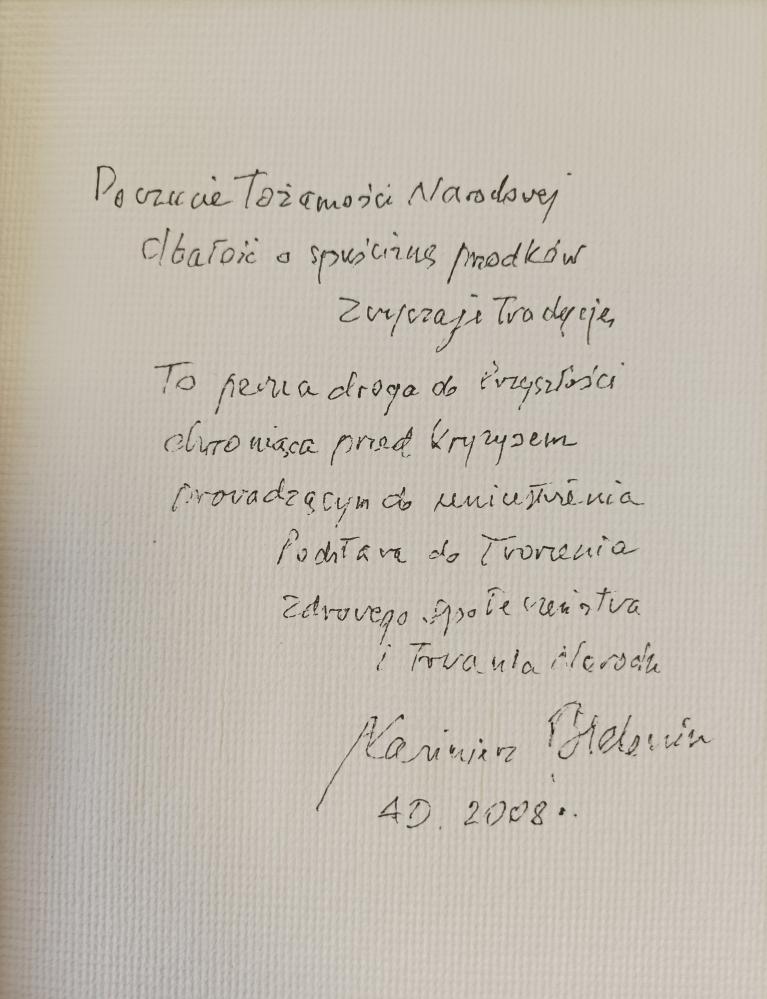 Poczucie Tożsamości Narodowej
dbałość o spuściznę przodków
Zwyczaje Tradycje,
To pewna droga do Przyszłości
chroniąca przed kryzysem
prowadzącym do unicestwienia
Podstawa do Tworzenia
zdrowego społeczeństwa
i Trwania Narodu
Kazimierz
AD. 2008.